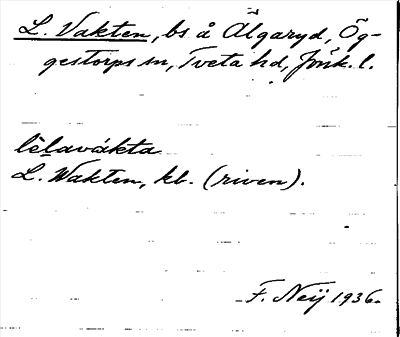 L. Vakten, bs å Älgaryd, Ög-
gestorps sn, Tveta hd, Jönk. l.
lèlavákta
L. Wakten, kb. (riven).
F. Neij 1936.